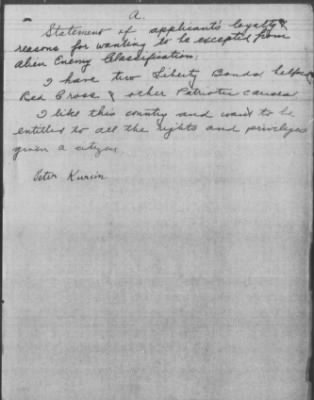 A.
Statement of applicant's loyalty &
reasons for wanting to be excepted from
alien Enemy Classification:
I have two Liberty Bonds helped
Red Cross & other Patriotic causes
I like this country and want to be
entitled to all the rights and privileges
given a citizen.
Peter